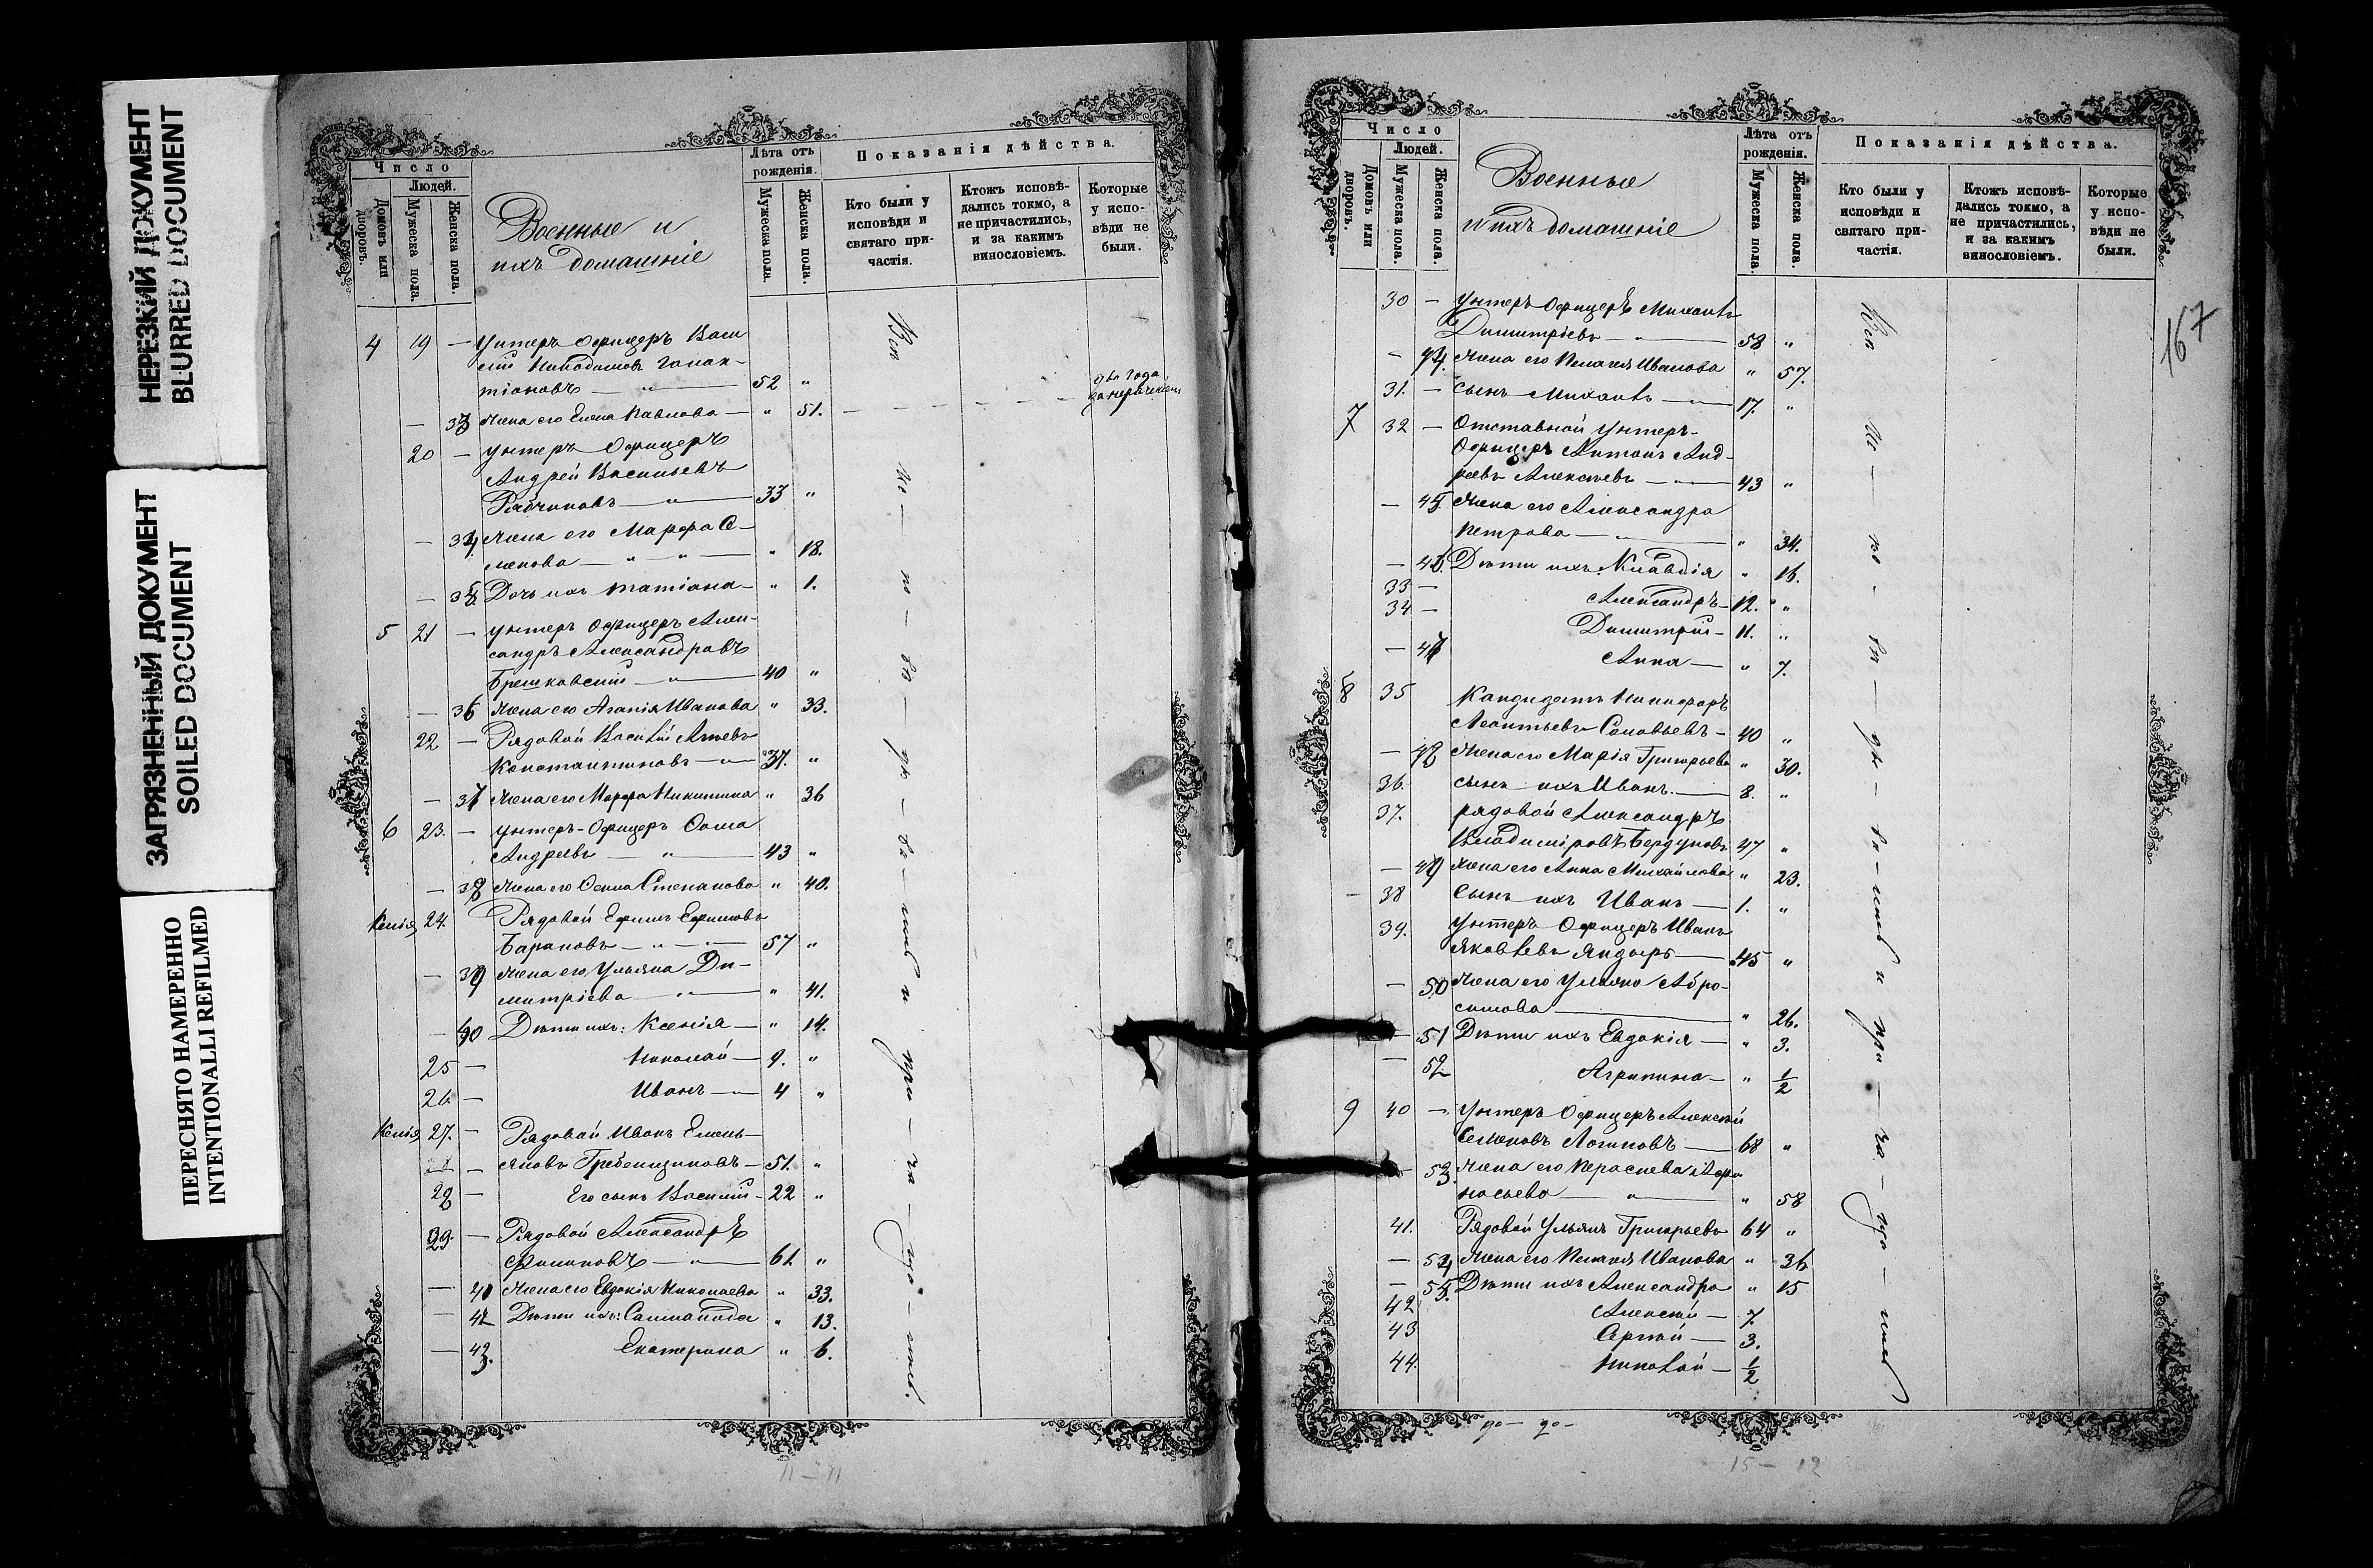 НЕРЕЗКИЙ ДОКУМЕНТ
BLURRED DOCUMENT
ЗАГРЯЗНЕННЫЙ ДОКУМЕНТ
SOILED DOCUMENT
ПЕРЕСНЯТО НАМЕРЕННО
INTENTIONALLI REFILMED
Число
Людей.
Домовъ или дворовъ.
Мужеска пола.
Женска пола.
Военные и
ихъ домашніе
Лѣта отъ рожденія.
Мужеска пола.
Женска пола.
Показанія дѣйства.
Кто были у исповѣди и святаго причастія.
Ктожъ исповѣдались токмо, а не причастились, и за какимъ винословіемъ.
Которые у исповѣди не были.
4 19 — Унтеръ Офицеръ Васи
лій Никодимовъ
52 "
— 33 Жена его Елена Павлова — " 51.
два года
20 — Унтеръ Офицеръ
Андрей Васильевъ
Рабчиковъ — " — 33 "
— 34 Жена его Марфа С
менова — " — " — " 18.
— 35 Дочь ихъ Татіана — " 1.
5 21 — Унтеръ Офицеръ Алек-
сандръ Александровъ
Брешковскій — " — 40 "
— 36 Жена его Агапія Иванова " 33.
22 — Рядовой Василій
Константиновъ — " — 37. "
— 37 Жена его Марфа Никитина " 36
6 23. — Унтеръ-Офицеръ Ѳома
Андреевъ — " — 43 "
— 38 Жена его Степанова " 40.
Келія 24. Рядовой Ефимъ Ефимовъ
Барановъ — " — " — 57 "
— 39 Жена его Ульяна Ди-
митріева — " — " 41.
— 40 Дѣти ихъ: Ксенія — " 14.
25 — Николай — 9. "
26. — Иванъ — " — 4 "
Келія 27. — Рядовой Иванъ Емель-
яновъ Гребенщиковъ — 51. "
28 — Его сынъ Василій — 22 "
29. — Рядовой Александръ
Филиповъ — " — 61. "
— 41 Жена его Евдокія Николаева " 33.
— 42 Дѣти ихъ: " 13.
— 43. Екатерина " 6.
Вси
ис — по — вѣ — да — лись и при — ча — сти — лись.
Число
Людей.
Домовъ или дворовъ.
Мужеска пола.
Женска пола.
Военные
и ихъ домашніе
Лѣта отъ рожденія.
Мужеска пола.
Женска пола.
Показанія дѣйства.
Кто были у исповѣди и святаго причастія.
Ктожъ исповѣдались токмо, а не причастились, и за какимъ винословіемъ.
Которые у исповѣди не были.
167
30 — Унтеръ Офицеръ Михаилъ
Димитріевъ — " — 58 "
— 44. Жена его Пелагія Иванова " 57.
31. — Сынъ Михаилъ — " — 17. "
7 32 — Отставной Унтеръ-
Офицеръ Антонъ Анд-
реевъ Алексѣевъ — " — 43 "
— 45. Жена его Александра
Петрова — " — " 34.
— 46. Дѣти ихъ: Клавдія " 16.
33 — Александръ — 12. "
34 — Димитрій — 11. "
— 47 Анна — " 7.
8 35 Кандидатъ Никифоръ
Леонтьевъ Соловьевъ — 40 "
— 48 Жена его Марія Григорьева " 30.
36. Сынъ ихъ Иванъ. — 8. "
37. рядовой Александръ
Владиміровъ 47 "
— 49 Жена его Анна Михайлова " 23.
— 38 Сынъ ихъ Иванъ — 1. "
39. Унтеръ Офицеръ Иванъ
Яковлевъ — 45 "
— 50 Жена его Ульяна Абро-
симова — " 26.
— 51 Дѣти ихъ Евдокія — " 3.
— 52 Агрипина — " 1/2
9 40 — Унтеръ Офицеръ Алексѣй
Семеновъ Логиновъ — 68 "
— 53. Жена его Параскева Афа
насьева — " — " 58
41. Рядовой Ульянъ Григорьевъ 64 "
— 54 Жена его Пелагія Иванова " 36
— 55. Дѣти ихъ Александра " 15
42 Алексѣй — 7.
43 Сергѣй — 3.
44. Николай — 1/2
Вси
ис — по — вѣ — да — лись и при — ча — сти — лись
15 — 12